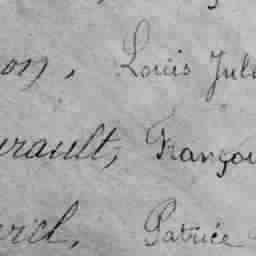 on, Louis Jule
urault, Françoi
riel, Patrice